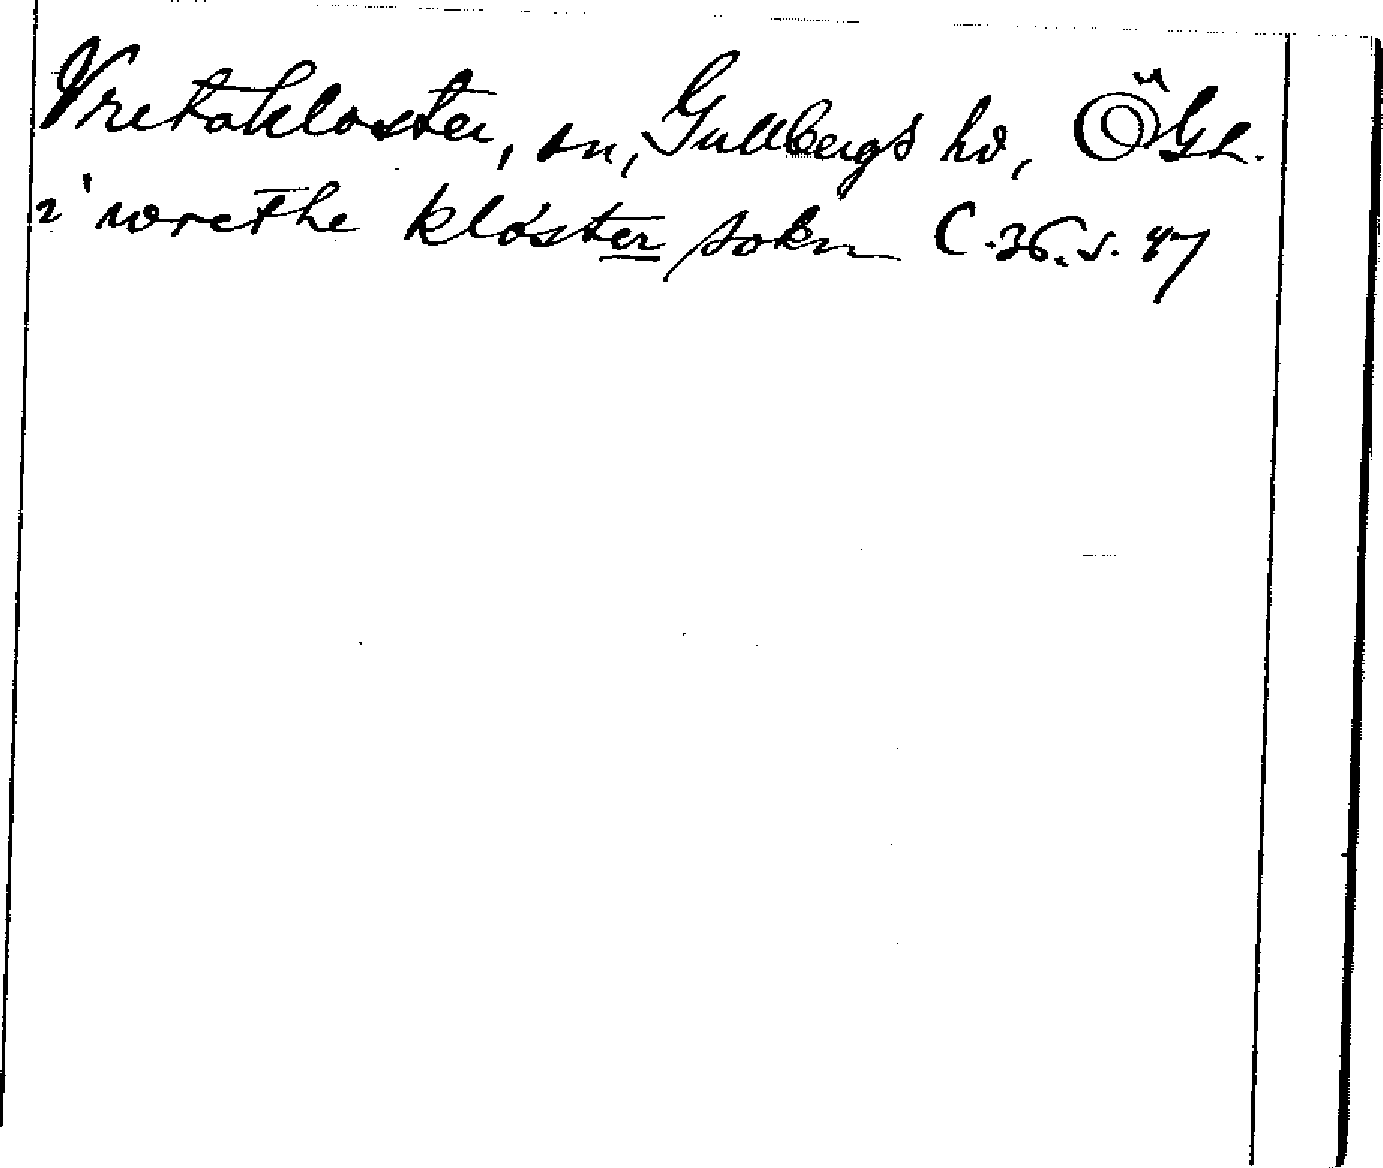 Vretakloster, sn, Gullbergs hd, ÖGL.
i wrethe kloster sokn C.36.s.47